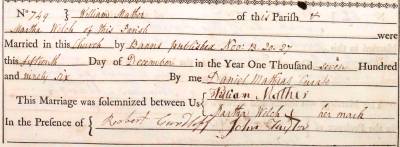 No 749 William Mather of this Parish &
Martha Welch of this Parish were
Married in this Church by Banns published Nov: 13. 20. 27
this fifteenth Day of December in the Year One Thousand seven Hundred
and ninety six By me Daniel Mathias Curate
This Marriage was solemnized between Us William Mather
Martha Welch X her mark
In the Presence of Robert John